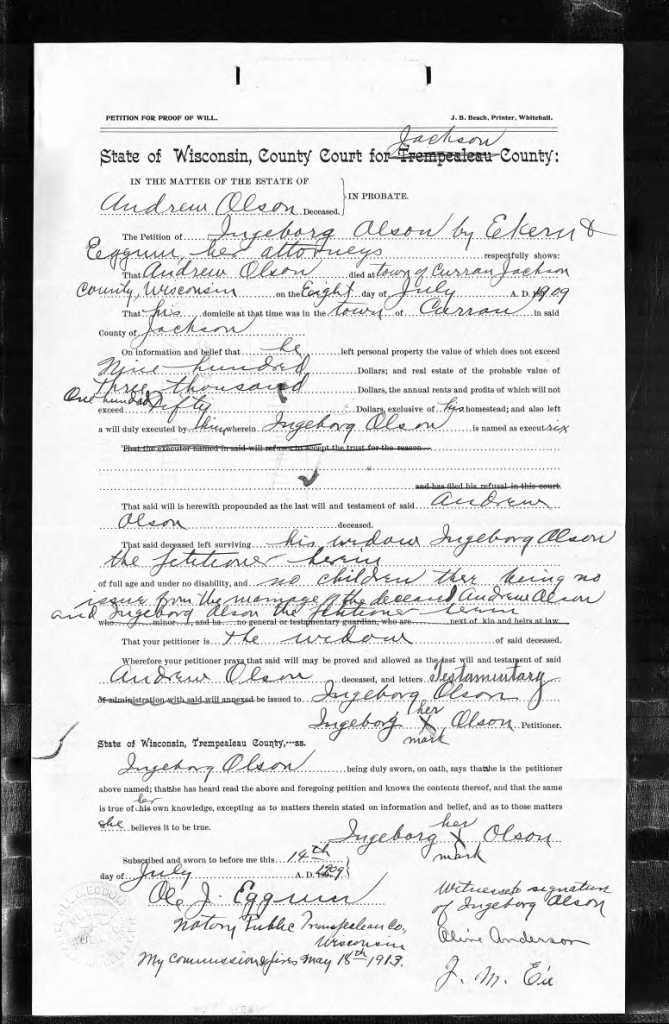 PETITION FOR PROOF OF WILL. J. B. Beach, Printer, Whitehall.
Jackson
State of Wisconsin, County Court for Trempealeau County:
IN THE MATTER OF THE ESTATE OF
Andrew Olson Deceased. IN PROBATE.
The Petition of Ingeborg Olson by Ekern &
Eggum, her attorneys respectfully shows:
That Andrew Olson died at town of Curran Jackson
County, Wisconsin on the Eight day of July A. D. 1909
That his domicile at that time was in the town of Curran in said
County of Jackson
On information and belief that he left personal property the value of which does not exceed
Nine hundred Dollars; and real estate of the probable value of
three thousand Dollars, the annual rents and profits of which will not
One hundred
exceed fifty Dollars, exclusive of his homestead; and also left
a will duly executed by him wherein Ingeborg Olson is named as executrix
That the executor named in said will refuses to accept the trust for the reason
and has filed his refusal in this court.
That said will is herewith propounded as the last will and testament of said Andrew
Olson deceased.
That said deceased left surviving his widow Ingeborg Olson
the petitioner herein
of full age and under no disability, and no children ther being no
issue from the marriage of the deceased Andrew Olson
and Ingeborg Olson the petitioner herein
who minor, and ha no general or testamentary guardian, who are next of kin and heirs at law.
That your petitioner is the widow of said deceased.
Wherefore your petitioner prays that said will may be proved and allowed as the last will and testament of said
Andrew Olson deceased, and letters Testamentary
of administration with said will annexed be issued to Ingeborg Olson
her
Ingeborg X Olson Petitioner.
mark
State of Wisconsin, Trempealeau County,—ss.
Ingeborg Olson being duly sworn, on oath, says that she is the petitioner
above named; that she has heard read the above and foregoing petition and knows the contents thereof, and that the same
her
is true of his own knowledge, excepting as to matters therein stated on information and belief, and as to those matters
she believes it to be true.
her
Ingeborg X Olson
mark
Subscribed and sworn to before me this 14th
day of July A. D. 1909
Ole J. Eggum
Notary Public Trempealeau Co,
Wisconsin
My commission expires May 18th 1913.
Witness to signature
of Ingeborg Olson
Oline Anderson
J. M. Eie